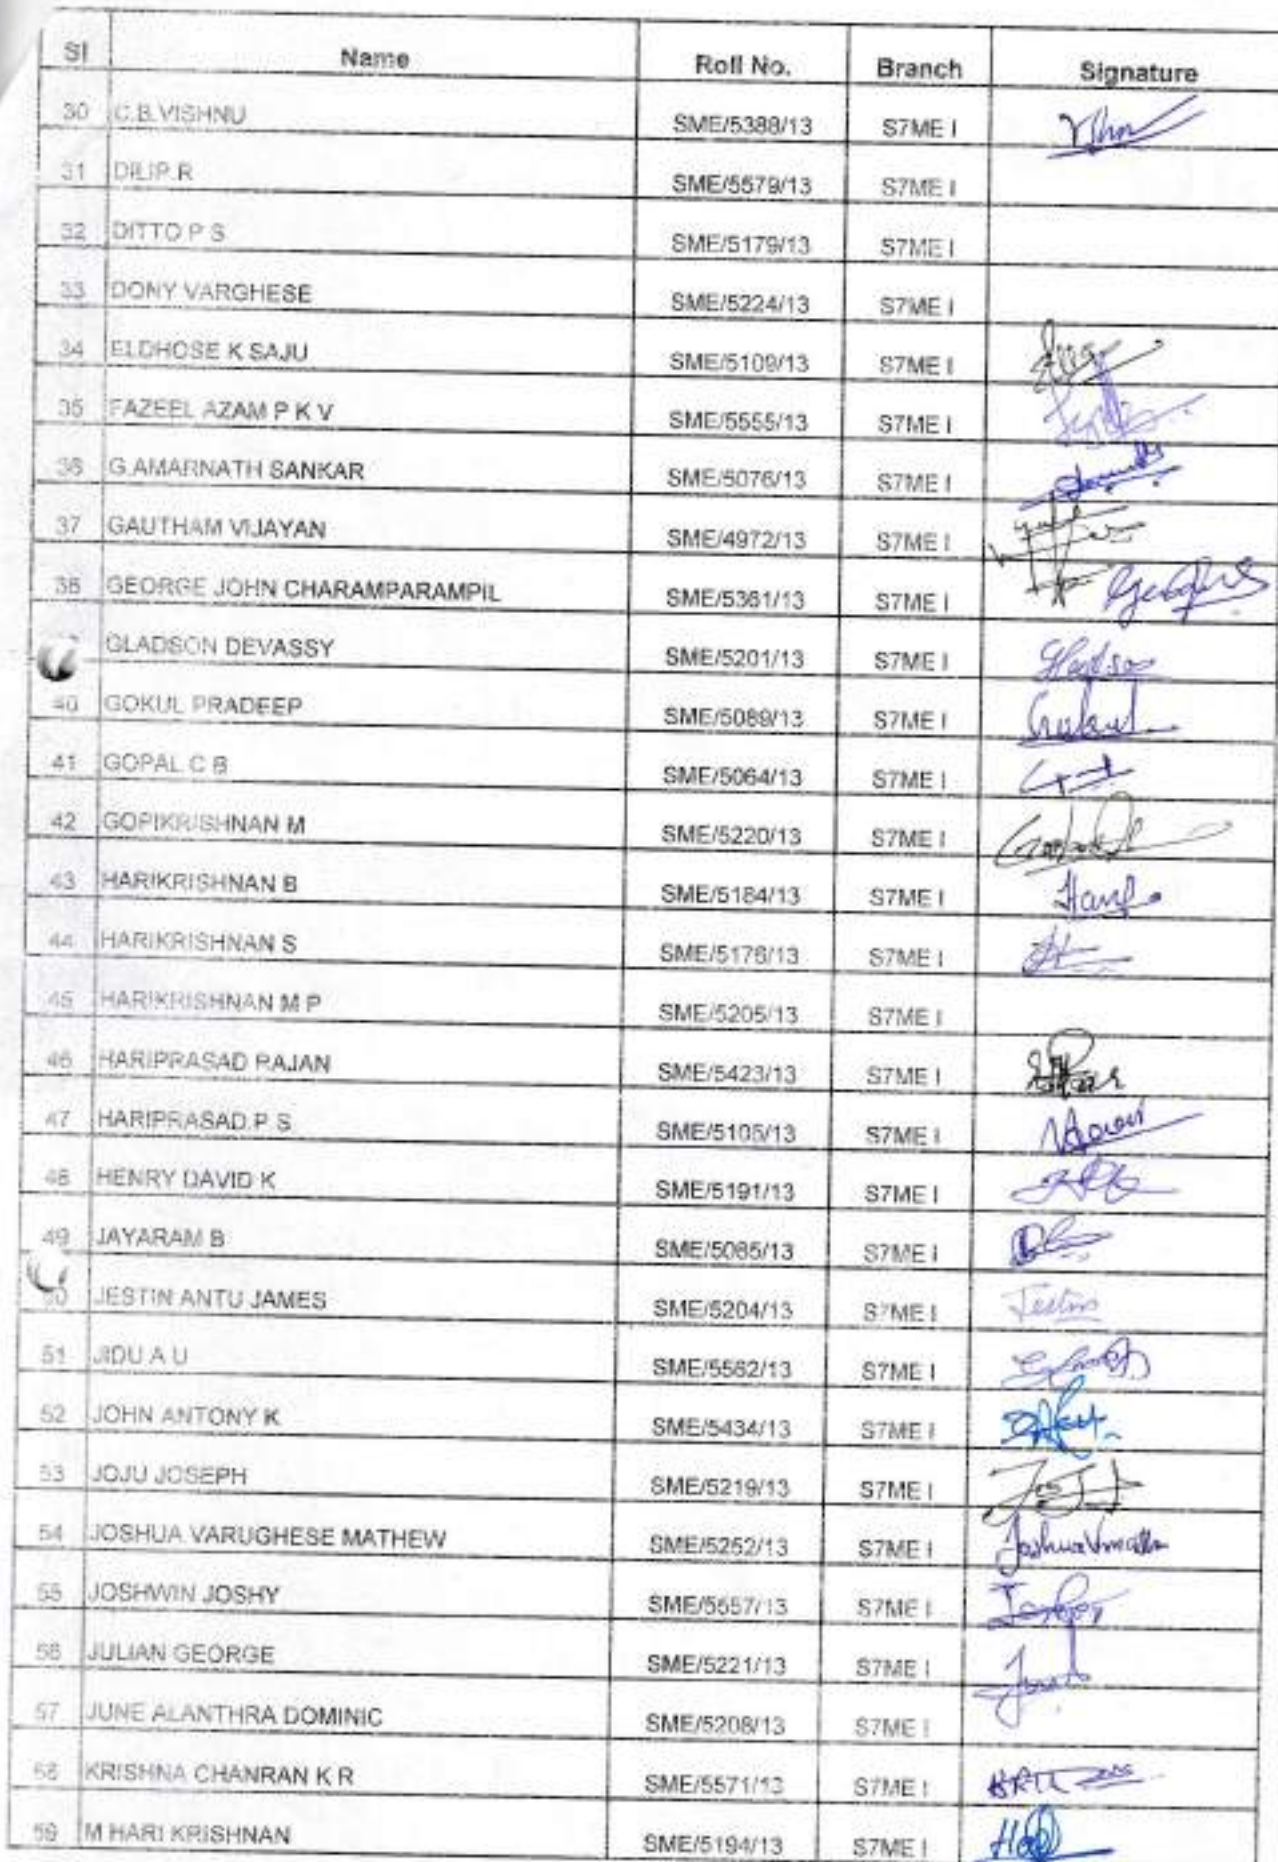 Sl Name Roll No. Branch Signature
30 C.B.VISHNU SME/5388/13 S7ME I
31 DILIP.R SME/5579/13 S7ME I
32 DITTO P S SME/5179/13 S7ME I
33 DONY VARGHESE SME/5224/13 S7ME I
34 ELDHOSE K SAJU SME/5109/13 S7ME I
35 FAZEEL AZAM P K V SME/5555/13 S7ME I
36 G.AMARNATH SANKAR SME/5076/13 S7ME I
37 GAUTHAM VIJAYAN SME/4972/13 S7ME I
38 GEORGE JOHN CHARAMPARAMPIL SME/5361/13 S7ME I
GLADSON DEVASSY SME/5201/13 S7ME I Gladson
40 GOKUL PRADEEP SME/5089/13 S7ME I Gokul
41 GOPAL C B SME/5064/13 S7ME I
42 GOPIKRISHNAN M SME/5220/13 S7ME I
43 HARIKRISHNAN B SME/5184/13 S7ME I
44 HARIKRISHNAN S SME/5176/13 S7ME I
45 HARIKRISHNAN M P SME/5205/13 S7ME I
46 HARIPRASAD RAJAN SME/5423/13 S7ME I
47 HARIPRASAD.P.S SME/5105/13 S7ME I
48 HENRY DAVID K SME/5191/13 S7ME I
49 JAYARAM B SME/5085/13 S7ME I
50 JESTIN ANTU JAMES SME/5204/13 S7ME I Jestin
51 JIDU A U SME/5562/13 S7ME I
52 JOHN ANTONY K SME/5434/13 S7ME I
53 JOJU JOSEPH SME/5219/13 S7ME I
54 JOSHUA VARUGHESE MATHEW SME/5252/13 S7ME I
55 JOSHWIN JOSHY SME/5557/13 S7ME I
56 JULIAN GEORGE SME/5221/13 S7ME I
57 JUNE ALANTHRA DOMINIC SME/5208/13 S7ME I
58 KRISHNA CHANRAN K R SME/5571/13 S7ME I
59 M HARI KRISHNAN SME/5194/13 S7ME I